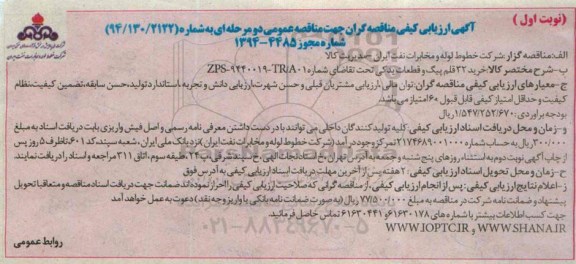 (نوبت اول)
آگهی ارزیابی کیفی مناقصه گران جهت مناقصه عمومی دو مرحله ای به شماره (94/130/2122)
شماره مجوز 4485-1394
الف: مناقصه گزار: شرکت خطوط لوله و مخابرات نفت ایران - مدیریت کالا
ب- شرح مختصر کالا: خرید 23 قلم پیک و قطعات یدکی تحت تقاضای شماره ZPS-9440019-TR/A-01
ج- معیارهای ارزیابی کیفی مناقصه گران: توان مالی، ارزیابی مشتریان قبلی و حسن شهرت، ارزیابی دانش و تجربه، استاندارد تولید، حسن سابقه، تضمین کیفیت، نظام
کیفیت و حداقل امتیاز کیفی قابل قبول 60 امتیاز می باشد.
بودجه برآوردی: 1/547/252/670 ریال
و- زمان و محل دریافت اسناد ارزیابی کیفی: کلیه تولیدکنندگان داخلی می توانند با در دست داشتن معرفی نامه رسمی و اصل فیش واریزی بابت دریافت اسناد به مبلغ
300/000 ریال به حساب شماره 2174689001000 تمرکز وجوه درآمد شرکت خطوط لوله و مخابرات نفت ایران نزد بانک ملی ایران، شعبه سپند، کد 601 تا ظرف 5 روز پس
از چاپ آگهی نوبت دوم به استثناء روزهای پنج شنبه و جمعه به آدرس: تهران، خ استاد نجات الهی، خ سپند شرقی، پ 24، طبقه سوم، اتاق 311 مراجعه و اسناد را دریافت نمایند.
ح- زمان و محل تحویل اسناد ارزیابی کیفی: 2 هفته پس از آخرین مهلت دریافت اسناد ارزیابی کیفی به آدرس فوق
ز- اعلام نتایج ارزیابی کیفی: پس از انجام ارزیابی کیفی، از مناقصه گرانی که صلاحیت ارزیابی کیفی را احراز نموده اند ضمانت جهت دریافت اسناد مناقصه و متعاقبا تحویل
پیشنهاد و ضمانت نامه شرکت در مناقصه به مبلغ 77/500/000 ریال (به صورت ضمانت نامه بانکی یا واریز وجه نقد) دعوت به عمل خواهد آمد
جهت کسب اطلاعات بیشتر با شماره های 61630178 و 61630441 تماس حاصل فرمائید.
WWW.IOPTC.IR و WWW.SHANA.IR
روابط عمومی
021-88349670-5